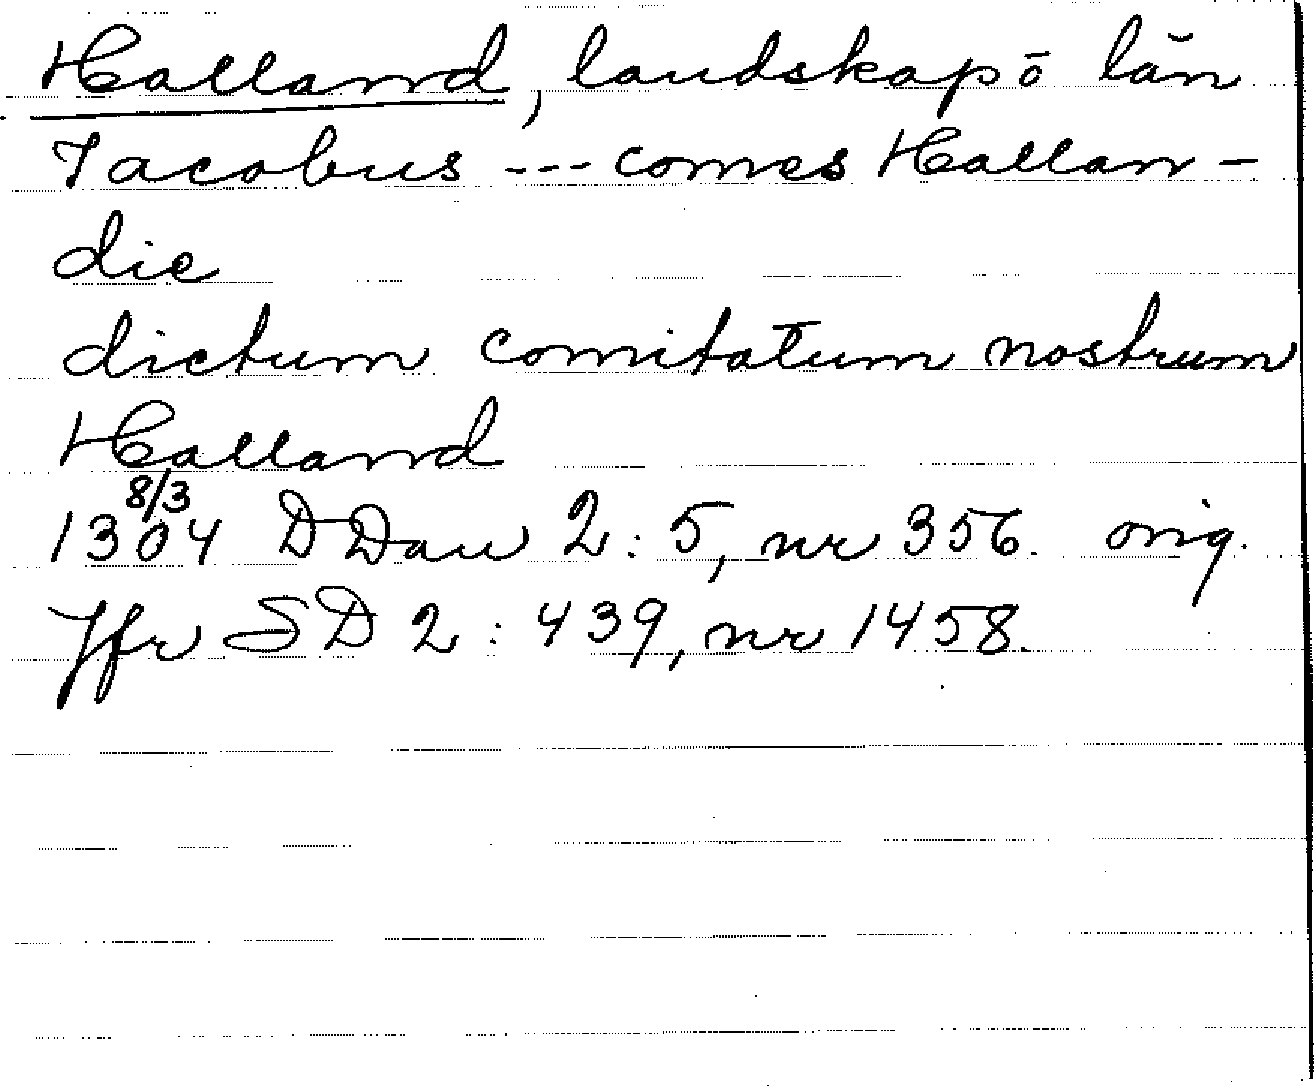 Halland, landskap ö län
Jacobus --- comes Hallan-
die
dictum comitatum nostrum
Halland
8/3
1304 DDan 2:5, nr 356. orig.
Jfr SD 2:439, nr 1458.